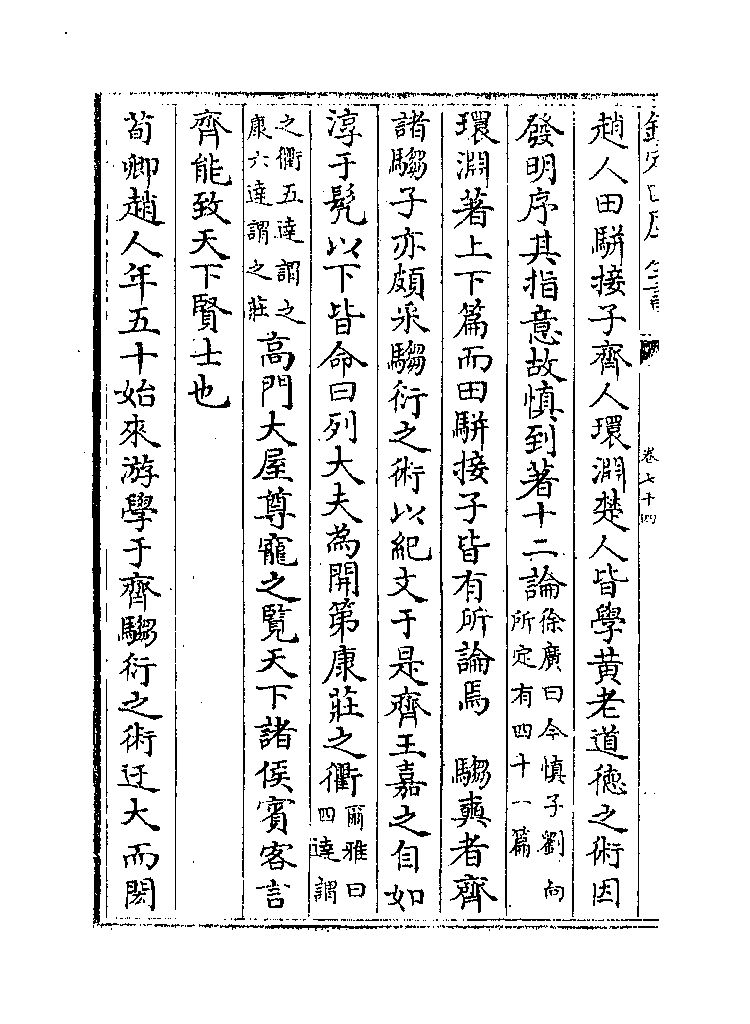 趙人田駢接子齊人環淵楚人皆學黄老道德之術因
發明序其指意故慎到著十二論徐廣曰今慎子劉向所定有四十一篇
環淵著上下篇而田駢接子皆有所論焉　騶奭者齊
諸騶子亦頗采騶衍之術以紀文于是齊王嘉之自如
淳于髡以下皆命曰列大夫為開第康莊之衢爾雅曰四達謂
之衢五達謂之康六達謂之莊高門大屋尊寵之覽天下諸侯賓客言
齊能致天下賢士也
荀卿趙人年五十始來游學于齊騶衍之術迂大而閎
卷七十四